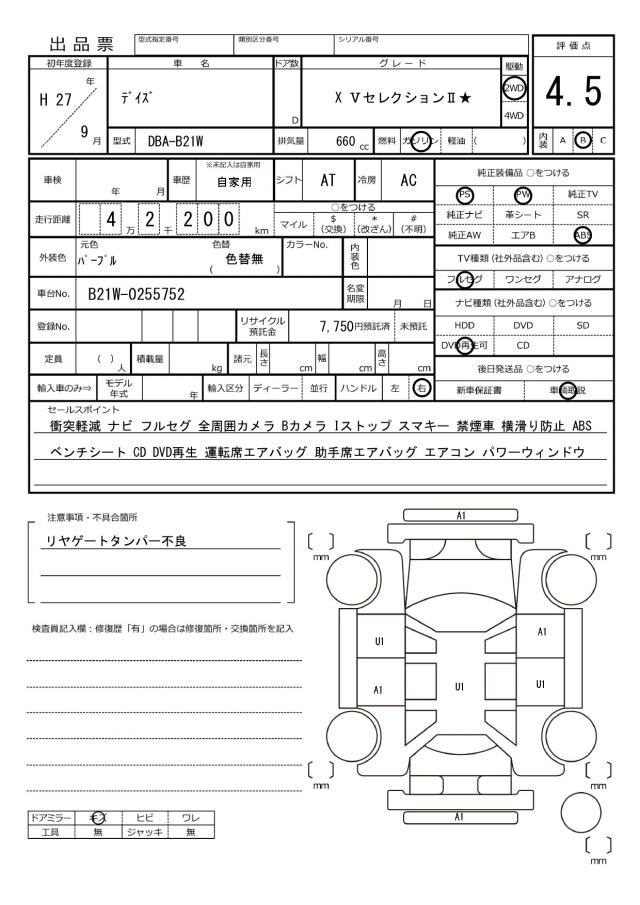 出品票
型式指定番号 類別区分番号 シリアル番号
評価点
4.5
初年度登録 車名 ドア数 グレード 駆動
H 27 年 ﾃﾞｲｽﾞ D X VセレクションⅡ★ 2WD
4WD
9 月 型式 DBA-B21W 排気量 660 cc 燃料 ガソリン 軽油 ( )
内装 A B C
車検 年 月 車歴 ※未記入は自家用 自家用 シフト AT 冷房 AC
走行距離 4 万 2 千 2 0 0 km ○をつける
マイル $(交換) *(改ざん) #(不明)
外装色 元色 ﾊﾟｰﾌﾟﾙ 色替 ( 色替無 ) カラーNo. 内装色
車台No. B21W-0255752 名変期限 月 日
登録No. リサイクル預託金 7,750円預託済 未預託
定員 ( ) 人 積載量 kg 諸元 長さ cm 幅 cm 高さ cm
輸入車のみ⇒ モデル年式 年 輸入区分 ディーラー 並行 ハンドル 左 右
純正装備品 ○をつける
PS PW 純正TV
純正ナビ 革シート SR
純正AW エアB ABS
TV種類(社外品含む)○をつける
フルセグ ワンセグ アナログ
ナビ種類(社外品含む)○をつける
HDD DVD SD
DVD再生可 CD
後日発送品 ○をつける
新車保証書 車輌取説
セールスポイント
衝突軽減 ナビ フルセグ 全周囲カメラ Bカメラ Iストップ スマキー 禁煙車 横滑り防止 ABS
ベンチシート CD DVD再生 運転席エアバッグ 助手席エアバッグ エアコン パワーウィンドウ
注意事項・不具合箇所
リヤゲートタンパー不良
検査員記入欄：修復歴「有」の場合は修復箇所・交換箇所を記入
A1
[ ] mm [ ] mm
U1 A1
A1 U1 U1
[ ] mm [ ] mm
A1
[ ] mm
ドアミラー キズ ヒビ ワレ
工具 無 ジャッキ 無